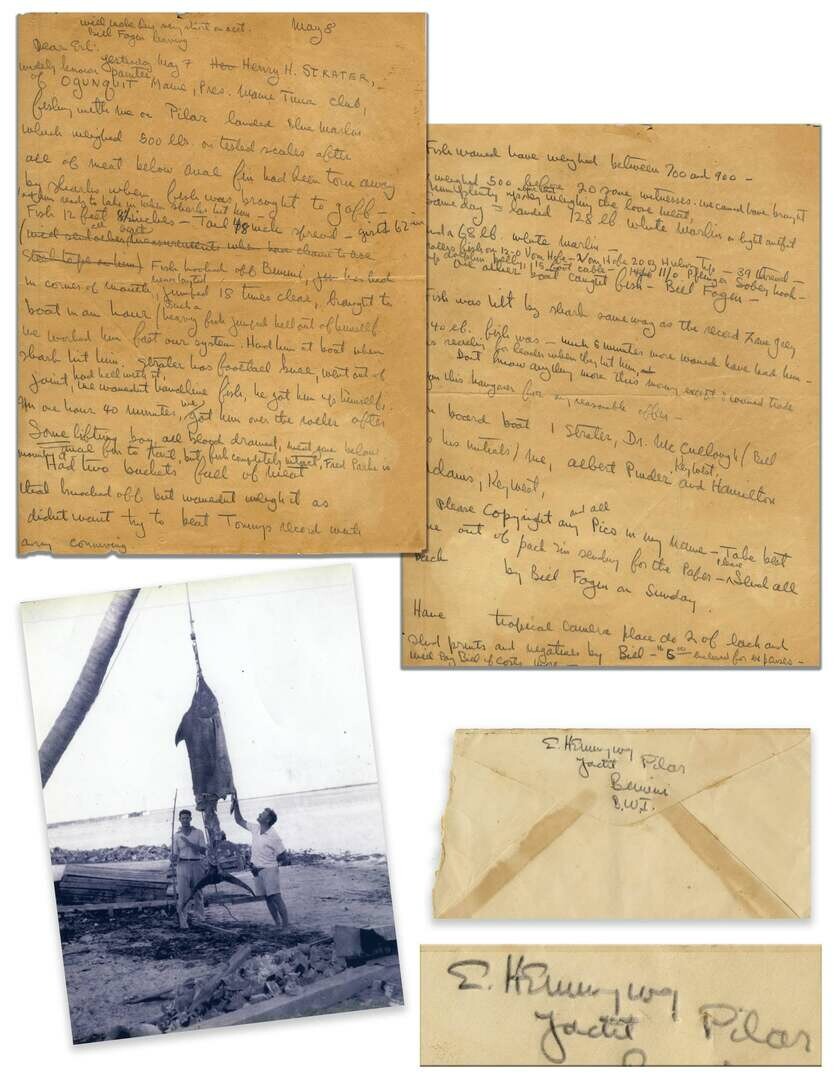 will make this very short on acct.
Bill Fagen leaving
May 8
Dear Erl:
yesterday May 7 Henry H. STRATER,
widely known painter
of OGUNQUIT Maine, Pres. Maine Tuna Club,
fishing with me on Pilar landed Blue Marlin
which weighed 500 lbs. on tested scales after
all of meat below anal fin had been torn away
by sharks when fish was brought to gaff -
when ready to take in when sharks hit him -
Fish 12 feet 8 inches - Tail 48 inch spread - girth 62 in
Fish hooked off Bimini, hooked
in corner of mouth, jumped 18 times clear, brought to
boat in an hour such a heavy fish jumped hell out of himself.
we worked him fast our system. Had him at boat when
shark hit him. Strater has football knee, went out of
joint, had hell with it, we wouldn't handline fish, he got him up himself.
In one hour 40 minutes, we got him over the roller after
Some lifting boy, all blood drained, meat gone below
anal fin to tail, but fish completely intact, Fred Parke is
Had two buckets full of meat
that knocked off but wouldn't weigh it as
didn't want try to beat Tommy's record with
any conniving
Fish would have weighed between 700 and 900 -
weighed 500 before 20 some witnesses. we could have brought
weighing the loose meat,
same day - landed 128 lb White Marlin on light outfit
and a 68 lb. white marlin -
20 oz Hickory Tip - 39 thread -
11/0 Pflueger Sobey hook -
no other boat caught fish - Bill Fagen -
Fish was hit by shark same way as the record Zane Grey
40 lb. fish was - 5 minutes more would have had him -
reaching for leader when they hit him,
Don't know anything more this morning except I would trade
this hangover for any reasonable offer -
board boat 1 Strater, Dr. McCullough / Bill
his initials / me, Albert Pinder Key West, and Hamilton
Adams, Key West,
Please Copyright any Pics in my name - Take best
and all
one out of pack in sending for the Paper - Send all
back by Bill Fagen on Sunday.
Have tropical camera place do 2 of each and
send prints and negatives by Bill - $5 00 enclosed for expenses -
will pay Bill if costs more -
E. Hemingway
Yacht Pilar
Bimini
B.W.I.
E. Hemingway
Yacht Pilar